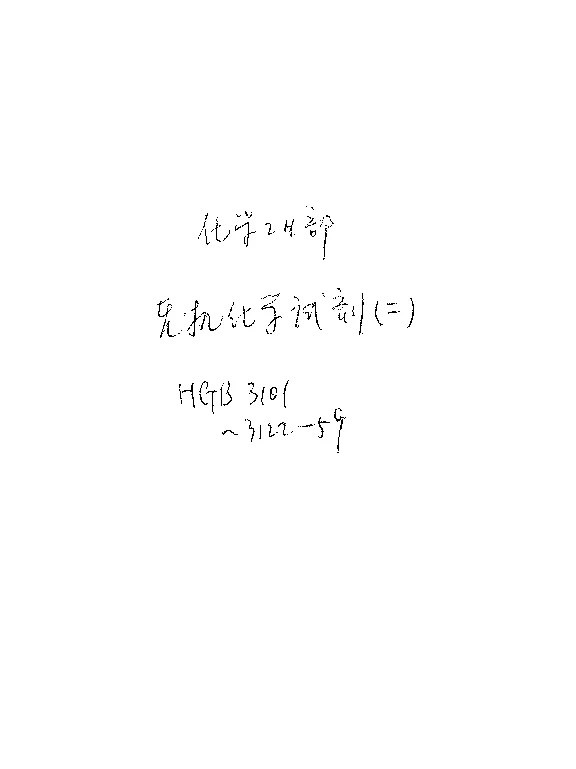 化学工业部
无机化学试剂(二)
HGB 3101
~3122-59